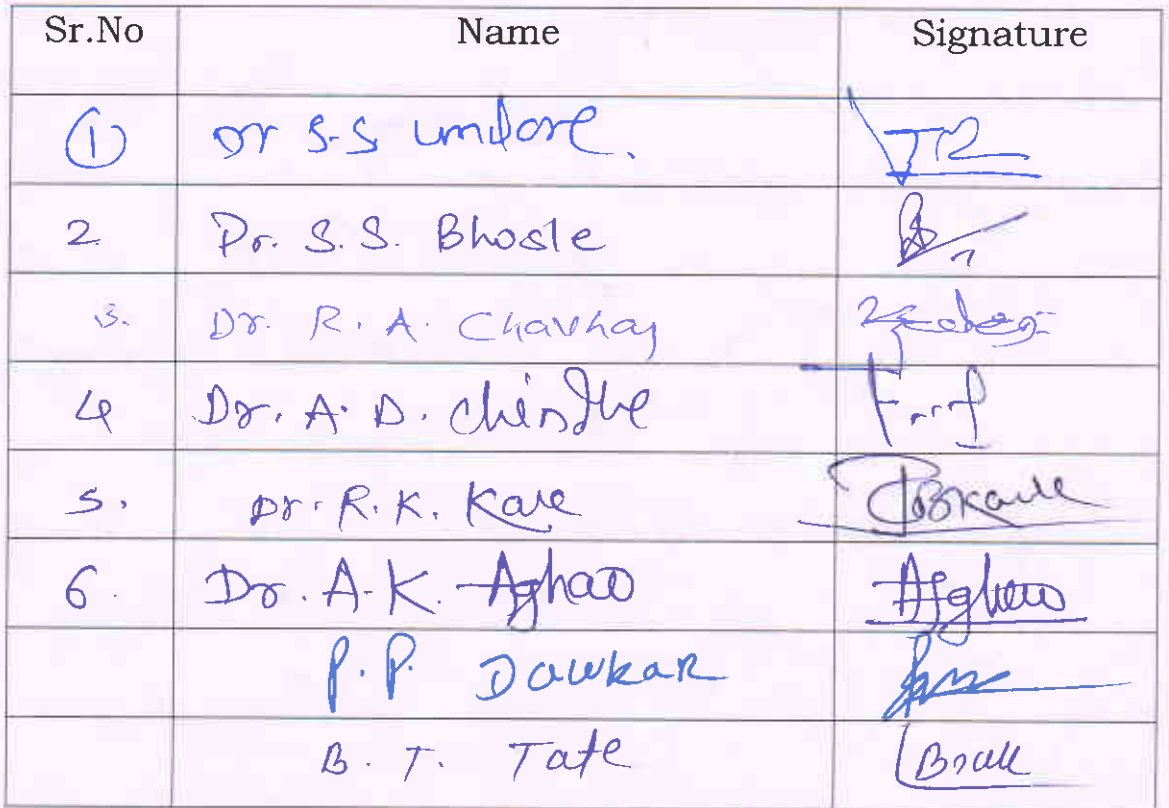 Sr.No Name Signature
1 Dr S.S Undare.
2 Dr. S.S. Bhosle
3. Dr. R. A. Chavhan
4 Dr. A. D. Chindhe
5. Dr. R. K. Kale
6. Dr. A. K. Aghao Aghao
P. P. Dawkar
B. T. Tate